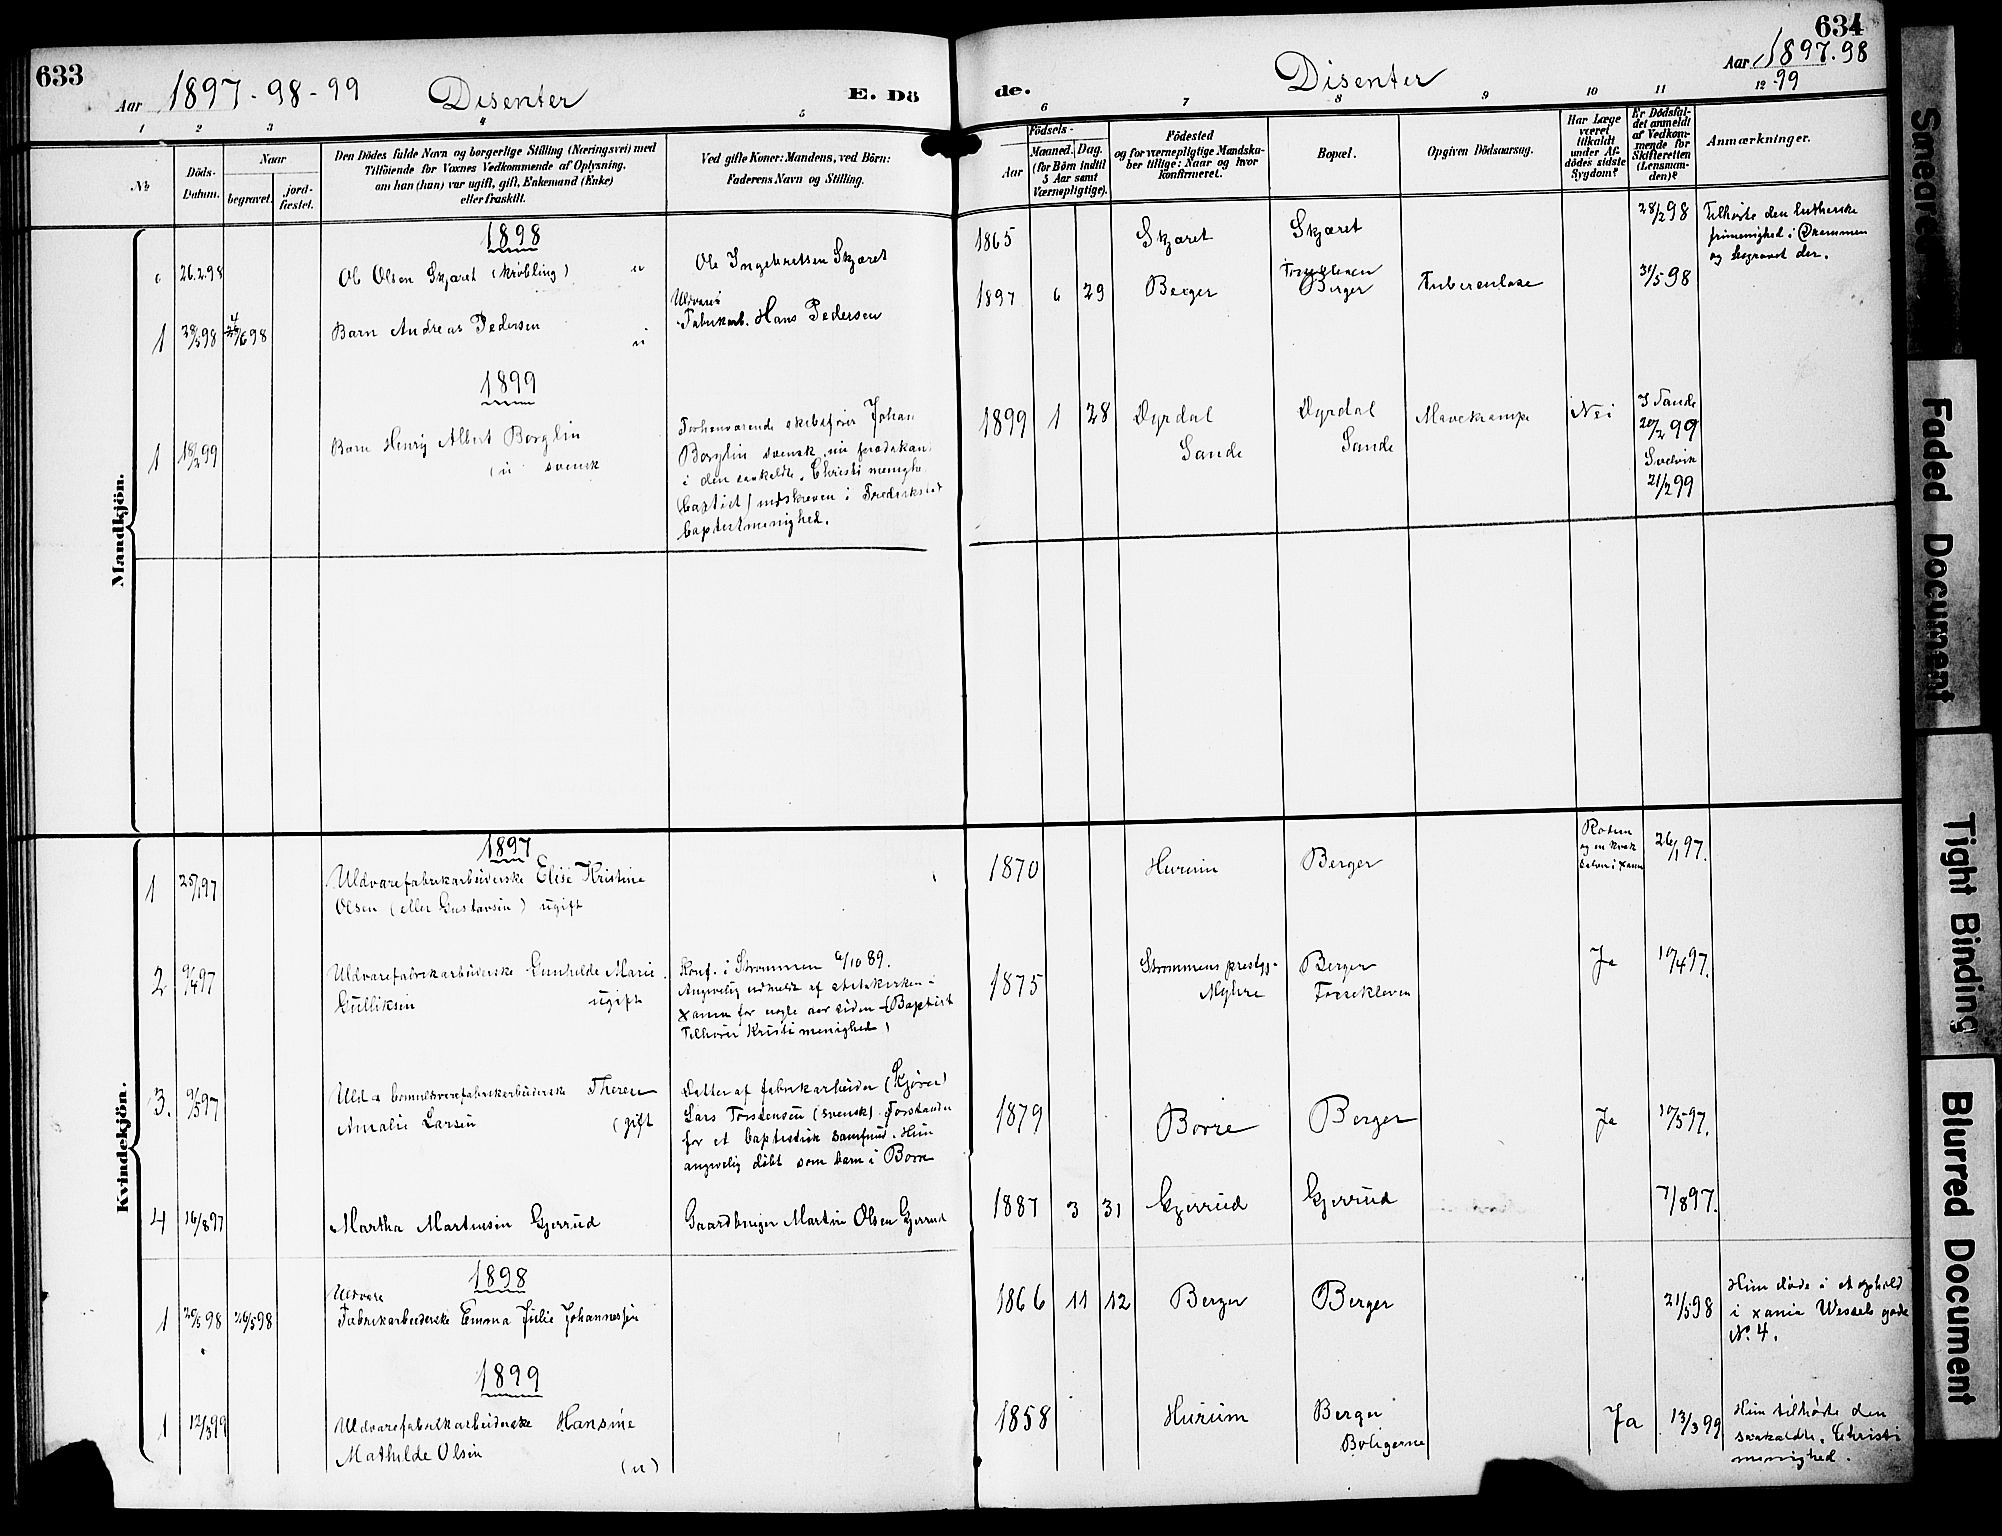 633
Aar 1897-98-99
Disenter
E. Dö
1 2 3 4 5
№
Döds-
Datum.
Naar
begravet.
jord-
fæstet.
Den Dödes fulde Navn og borgerlige Stilling (Næringsvei) med
Tilföiende for Voxnes Vedkommende af Oplysning,
om han (hun) var ugift, gift, Enkemand (Enke)
eller fraskilt.
Ved gifte Koner: Mandens, ved Börn:
Faderens Navn og Stilling.
Mandkjön.
1898
26.2.98
Ole Olsen Skjæret (Krøbling) u
Ole Ingebretsen Skjæret
1 28/5 98 4/6 98
Barn Andreas Pedersen u
Uldvare
Fabrikarb. Hans Pedersen
1899
1 18/2 99
Barn Henry Albert Borglin
(u svensk
Forhenværende skibsfører Johan
Borglin svensk, nu prædikant
i den saakaldte Christi menighe
(baptist) indskreven i Fredrikstad
baptistmenighed.
Kvindekjön.
1897
1 25/1 97
Uldvarefabrikarbeiderske Elise Kristine
Olsen (eller Gustavsen) ugift
2 9/4 97
Uldvarefabrikarbeiderske Gunhilde Marie
Gulliksen ugift
Konf. i Strømmen 6/10 89.
Angivelig udmeldt af statskirken i
Xania for nogle aar siden (Baptist
Tilhører Kristi menighed)
3. 9/5 97
Uld & bomuldsvarefabrikarbeiderske Therese
Amalie Larsen (gift
Datter af fabrikarbeider (Kjører)
Lars Torstensen (svensk) Forstander
for et baptistisk samfund. Hun
angivelig døbt som barn i Borre
4 16/8 97
Martha Martinsen Gjerrud
Gaardbruger Martin Olsen Gjerrud
1898
1 20/5 98 26/5 98
Uldvare
Fabrikarbeiderske Emma Julie Johannessen
1899
1 12/3 99
Uldvarefabrikarbeiderske Hansine
Mathilde Olsen (u)
634
Aar 1897.98
99
Disenter
de.
6 7 8 9 10 11 12
Födsels-
Aar
Maaned. Dag.
(for Börn indtil
5 Aar samt
Værnepligtige).
Födested
og for værnepligtige Mandska-
ber tillige: Naar og hvor
Konfirmeret.
Bopæl.
Opgiven Dödsaarsag.
Har Læge
været
tilkaldt
under Af-
dödes sidste
Sygdom?
Er Dödsfal-
det anmeldt
af Vedkom-
mende for
Skifteretten
(Lensman-
den)?
Anmærkninger.
1865 Skjæret Skjæret 28/2 98
Tilhørte den lutherske
frimenighed i Drammen
og begravet der.
1897 6 29 Berger
Fossekleven
Berger Tuberculose 31/5 98
1899 1 28 Dyrdal
Sande
Dyrdal
Sande
Mavekrampe Nei
I Sande
20/2 99
Svelvik
21/2 99
1870 Hurum Berger 26/1 97.
1875 Strømmens prestgj.
Myhre
Berger
Fossekleven
Ja 10/4 97.
1879 Borre Berger Ja 10/5 97.
1887 3 31 Gjerrud Gjerrud 7/8 97.
1866 11 12 Berger Berger 21/5 98
Hun døde i et ophold
i Xania Wessels gade
No. 4.
1858 Hurum Berger
Boligerne
Ja 13/3 99
Hun tilhørte den
saakaldte Christi
menighed.
Smeared
Faded Document
Tight Binding
Blurred Document